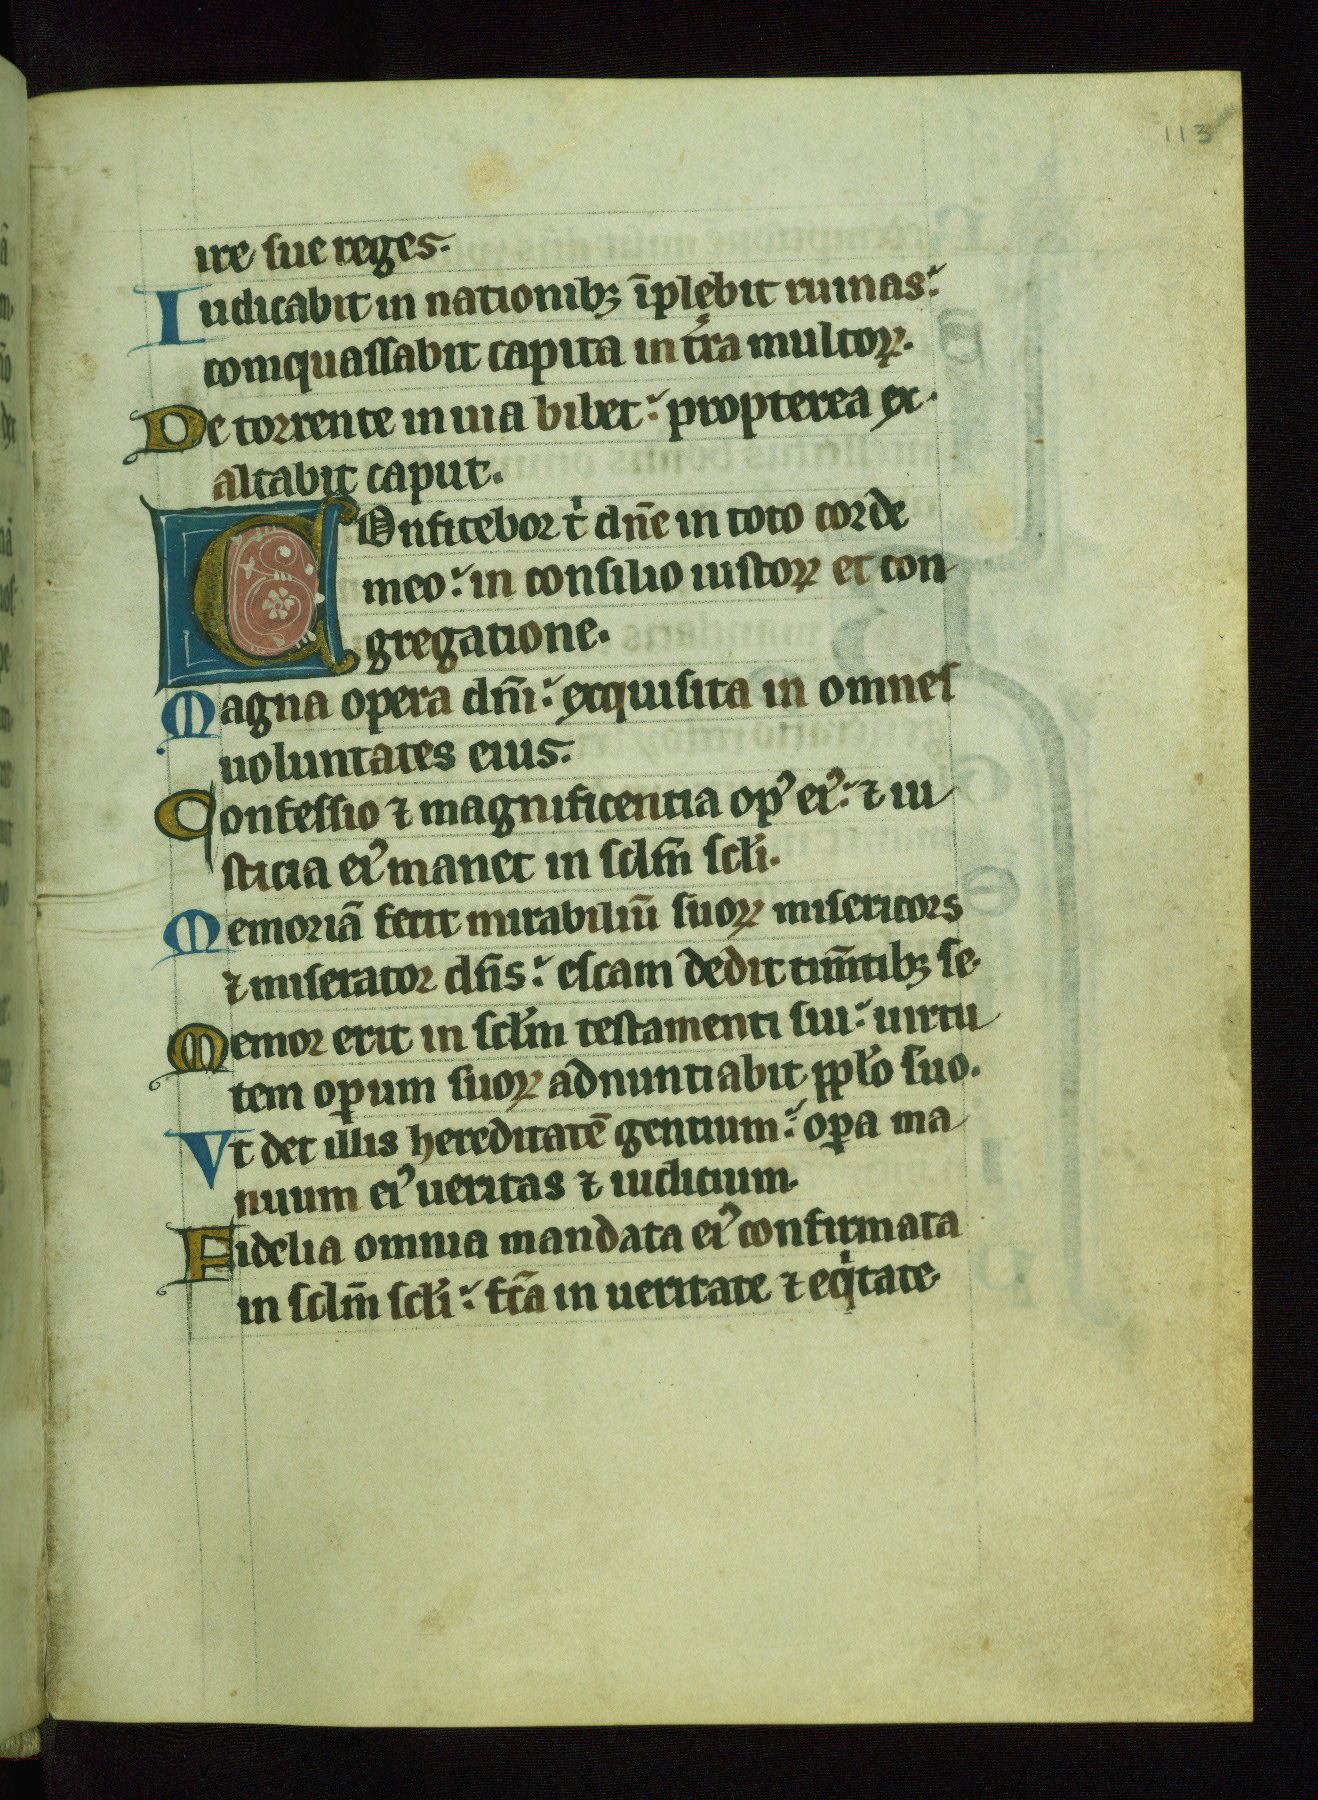 113
ire sue reges.
Iudicabit in nationibꝫ īplebit ruinas:
conquassabit capita in tr̄a multoꝝ.
De torrente in uia bibet: propterea ex
altabit caput.
COnfitebor t̾ dn̄e in toto corde
meo: in consilio iustoꝝ et con
gregatione.
Magna opera dn̄i: exquisita in omnes
uoluntates eius:
Confessio ⁊ magnificentia opꝰ eiꝰ: ⁊ iu
sticia eiꝰ manet in sclm̄ scl̄i.
Memoriā fecit mirabiliū suoꝝ misericors
⁊ miserator dn̄s: escam dedit tim̄tibꝫ se.
Memor erit in scl̄m testamenti sui: uirtu
tem oꝑum suoꝝ adnuntiabit ppl̄o suo.
Vt det illis hereditatē gentium: oꝑa ma
nuum eiꝰ ueritas ⁊ iudicium.
Fidelia omnia mandata eiꝰ confirmata
in sclm̄ scl̄i: fc̄a in ueritate ⁊ eqͥtate